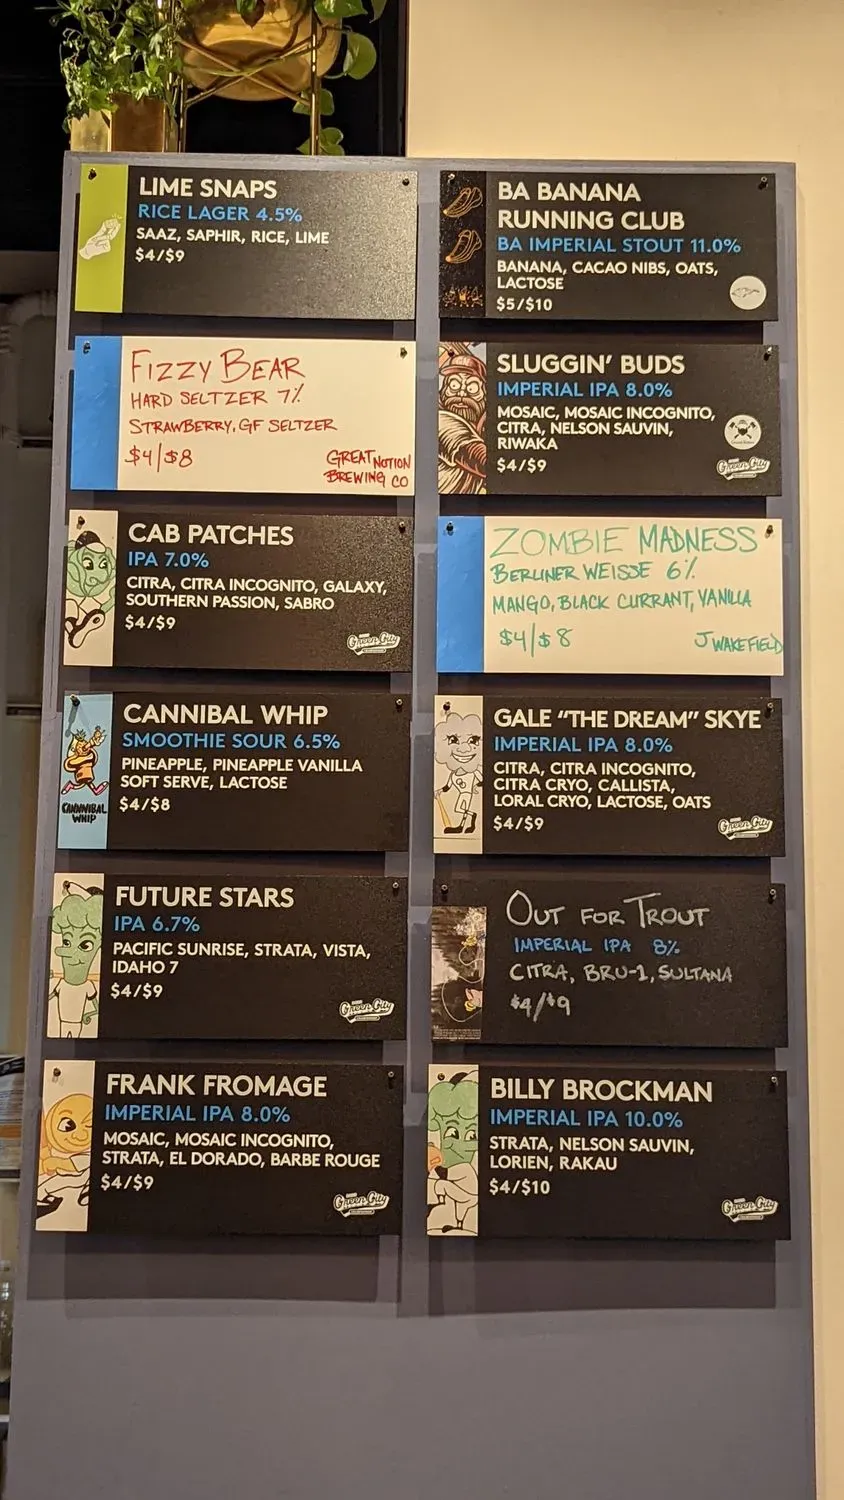 LIME SNAPS
RICE LAGER 4.5%
SAAZ, SAPHIR, RICE, LIME
$4/$9
FIZZY BEAR
HARD SELTZER 7%
STRAWBERRY, GF SELTZER
$4/$8
GREAT NOTION
BREWING CO
CAB PATCHES
IPA 7.0%
CITRA, CITRA INCOGNITO, GALAXY,
SOUTHERN PASSION, SABRO
$4/$9
Green City
CANNIBAL WHIP
SMOOTHIE SOUR 6.5%
PINEAPPLE, PINEAPPLE VANILLA
SOFT SERVE, LACTOSE
$4/$8
CANNIBAL
WHIP
FUTURE STARS
IPA 6.7%
PACIFIC SUNRISE, STRATA, VISTA,
IDAHO 7
$4/$9
Green City
FRANK FROMAGE
IMPERIAL IPA 8.0%
MOSAIC, MOSAIC INCOGNITO,
STRATA, EL DORADO, BARBE ROUGE
$4/$9
Green City
BA BANANA
RUNNING CLUB
BA IMPERIAL STOUT 11.0%
BANANA, CACAO NIBS, OATS,
LACTOSE
$5/$10
SLUGGIN' BUDS
IMPERIAL IPA 8.0%
MOSAIC, MOSAIC INCOGNITO,
CITRA, NELSON SAUVIN,
RIWAKA
$4/$9
Green City
ZOMBIE MADNESS
BERLINER WEISSE 6%
MANGO, BLACK CURRANT, VANILLA
$4/$8
J WAKEFIELD
GALE "THE DREAM" SKYE
IMPERIAL IPA 8.0%
CITRA, CITRA INCOGNITO,
CITRA CRYO, CALLISTA,
LORAL CRYO, LACTOSE, OATS
$4/$9
Green City
OUT FOR TROUT
IMPERIAL IPA 8%
CITRA, BRU-1, SULTANA
$4/$9
BILLY BROCKMAN
IMPERIAL IPA 10.0%
STRATA, NELSON SAUVIN,
LORIEN, RAKAU
$4/$10
Green City